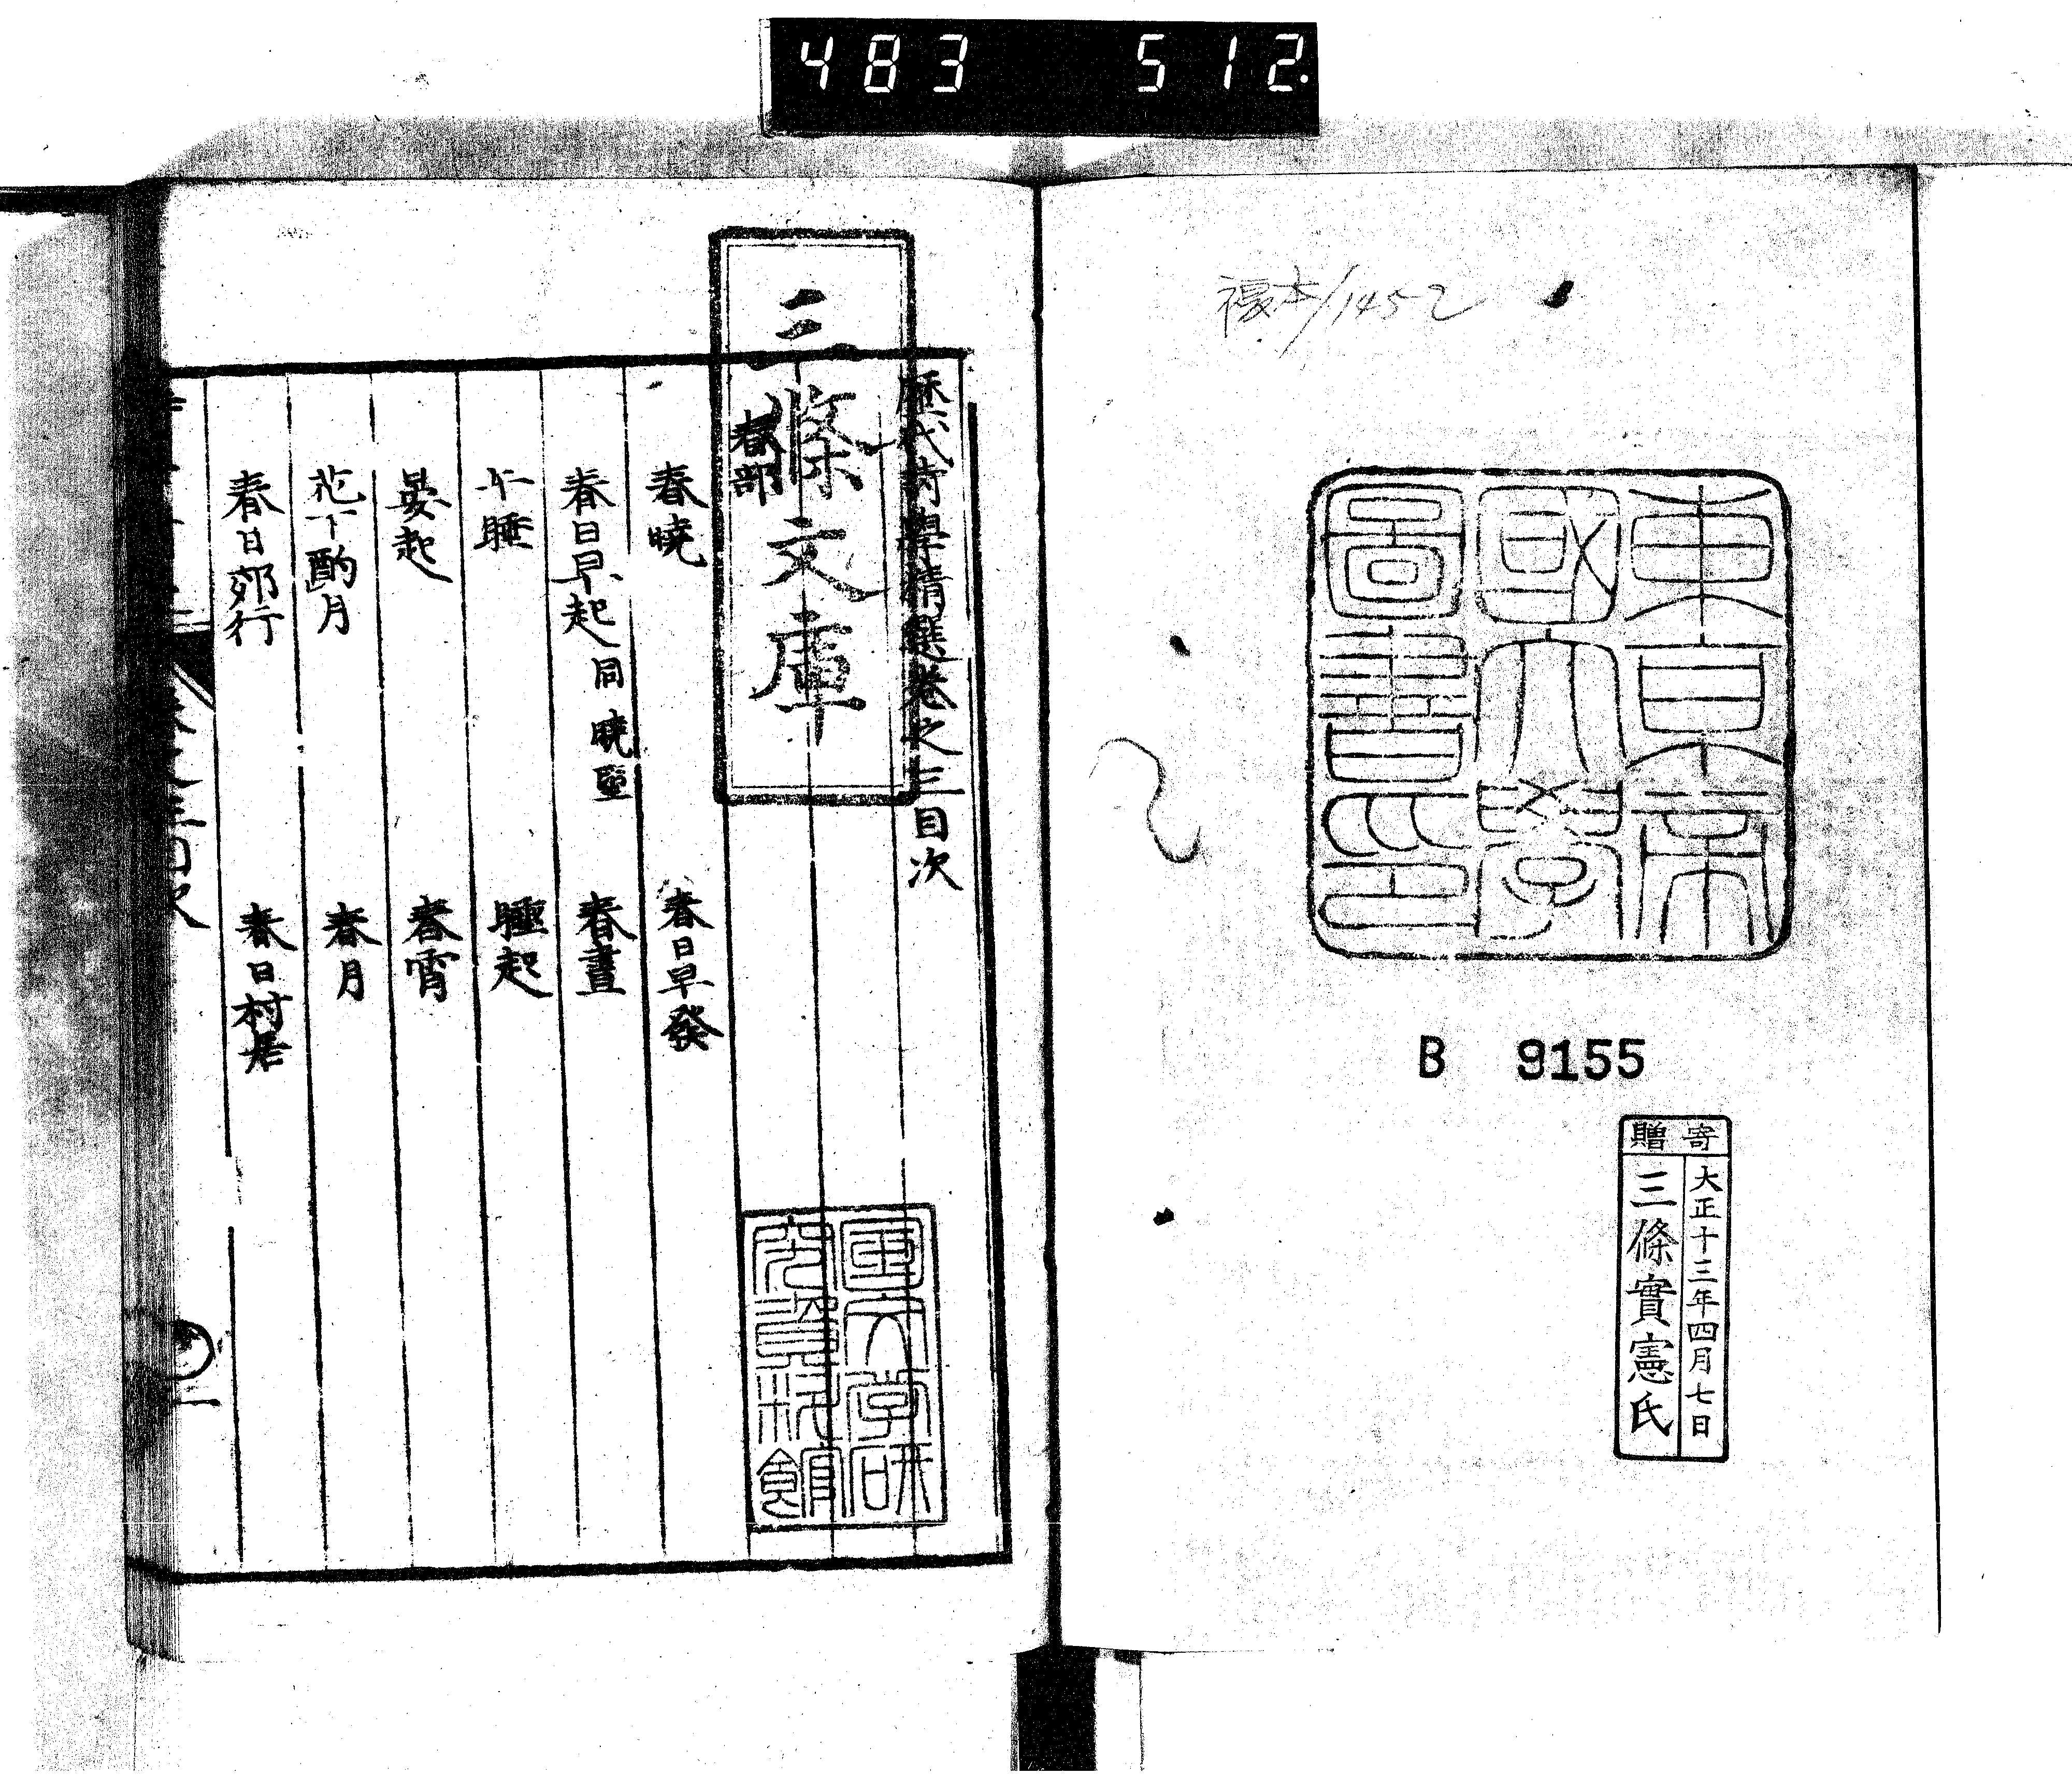 483 512.
複本/145-2
東京帝
國大學
圖書印
B 9155
寄贈
大正十三年四月七日
三條實憲氏
歴代詩學精選卷之三目次
三條文庫
春部
春曉
春日早發
春日早起同曉望
春晝
午睡
睡起
晏起
春宵
花下酌月
春月
春日郊行
春日村居
国文学研
究資料館